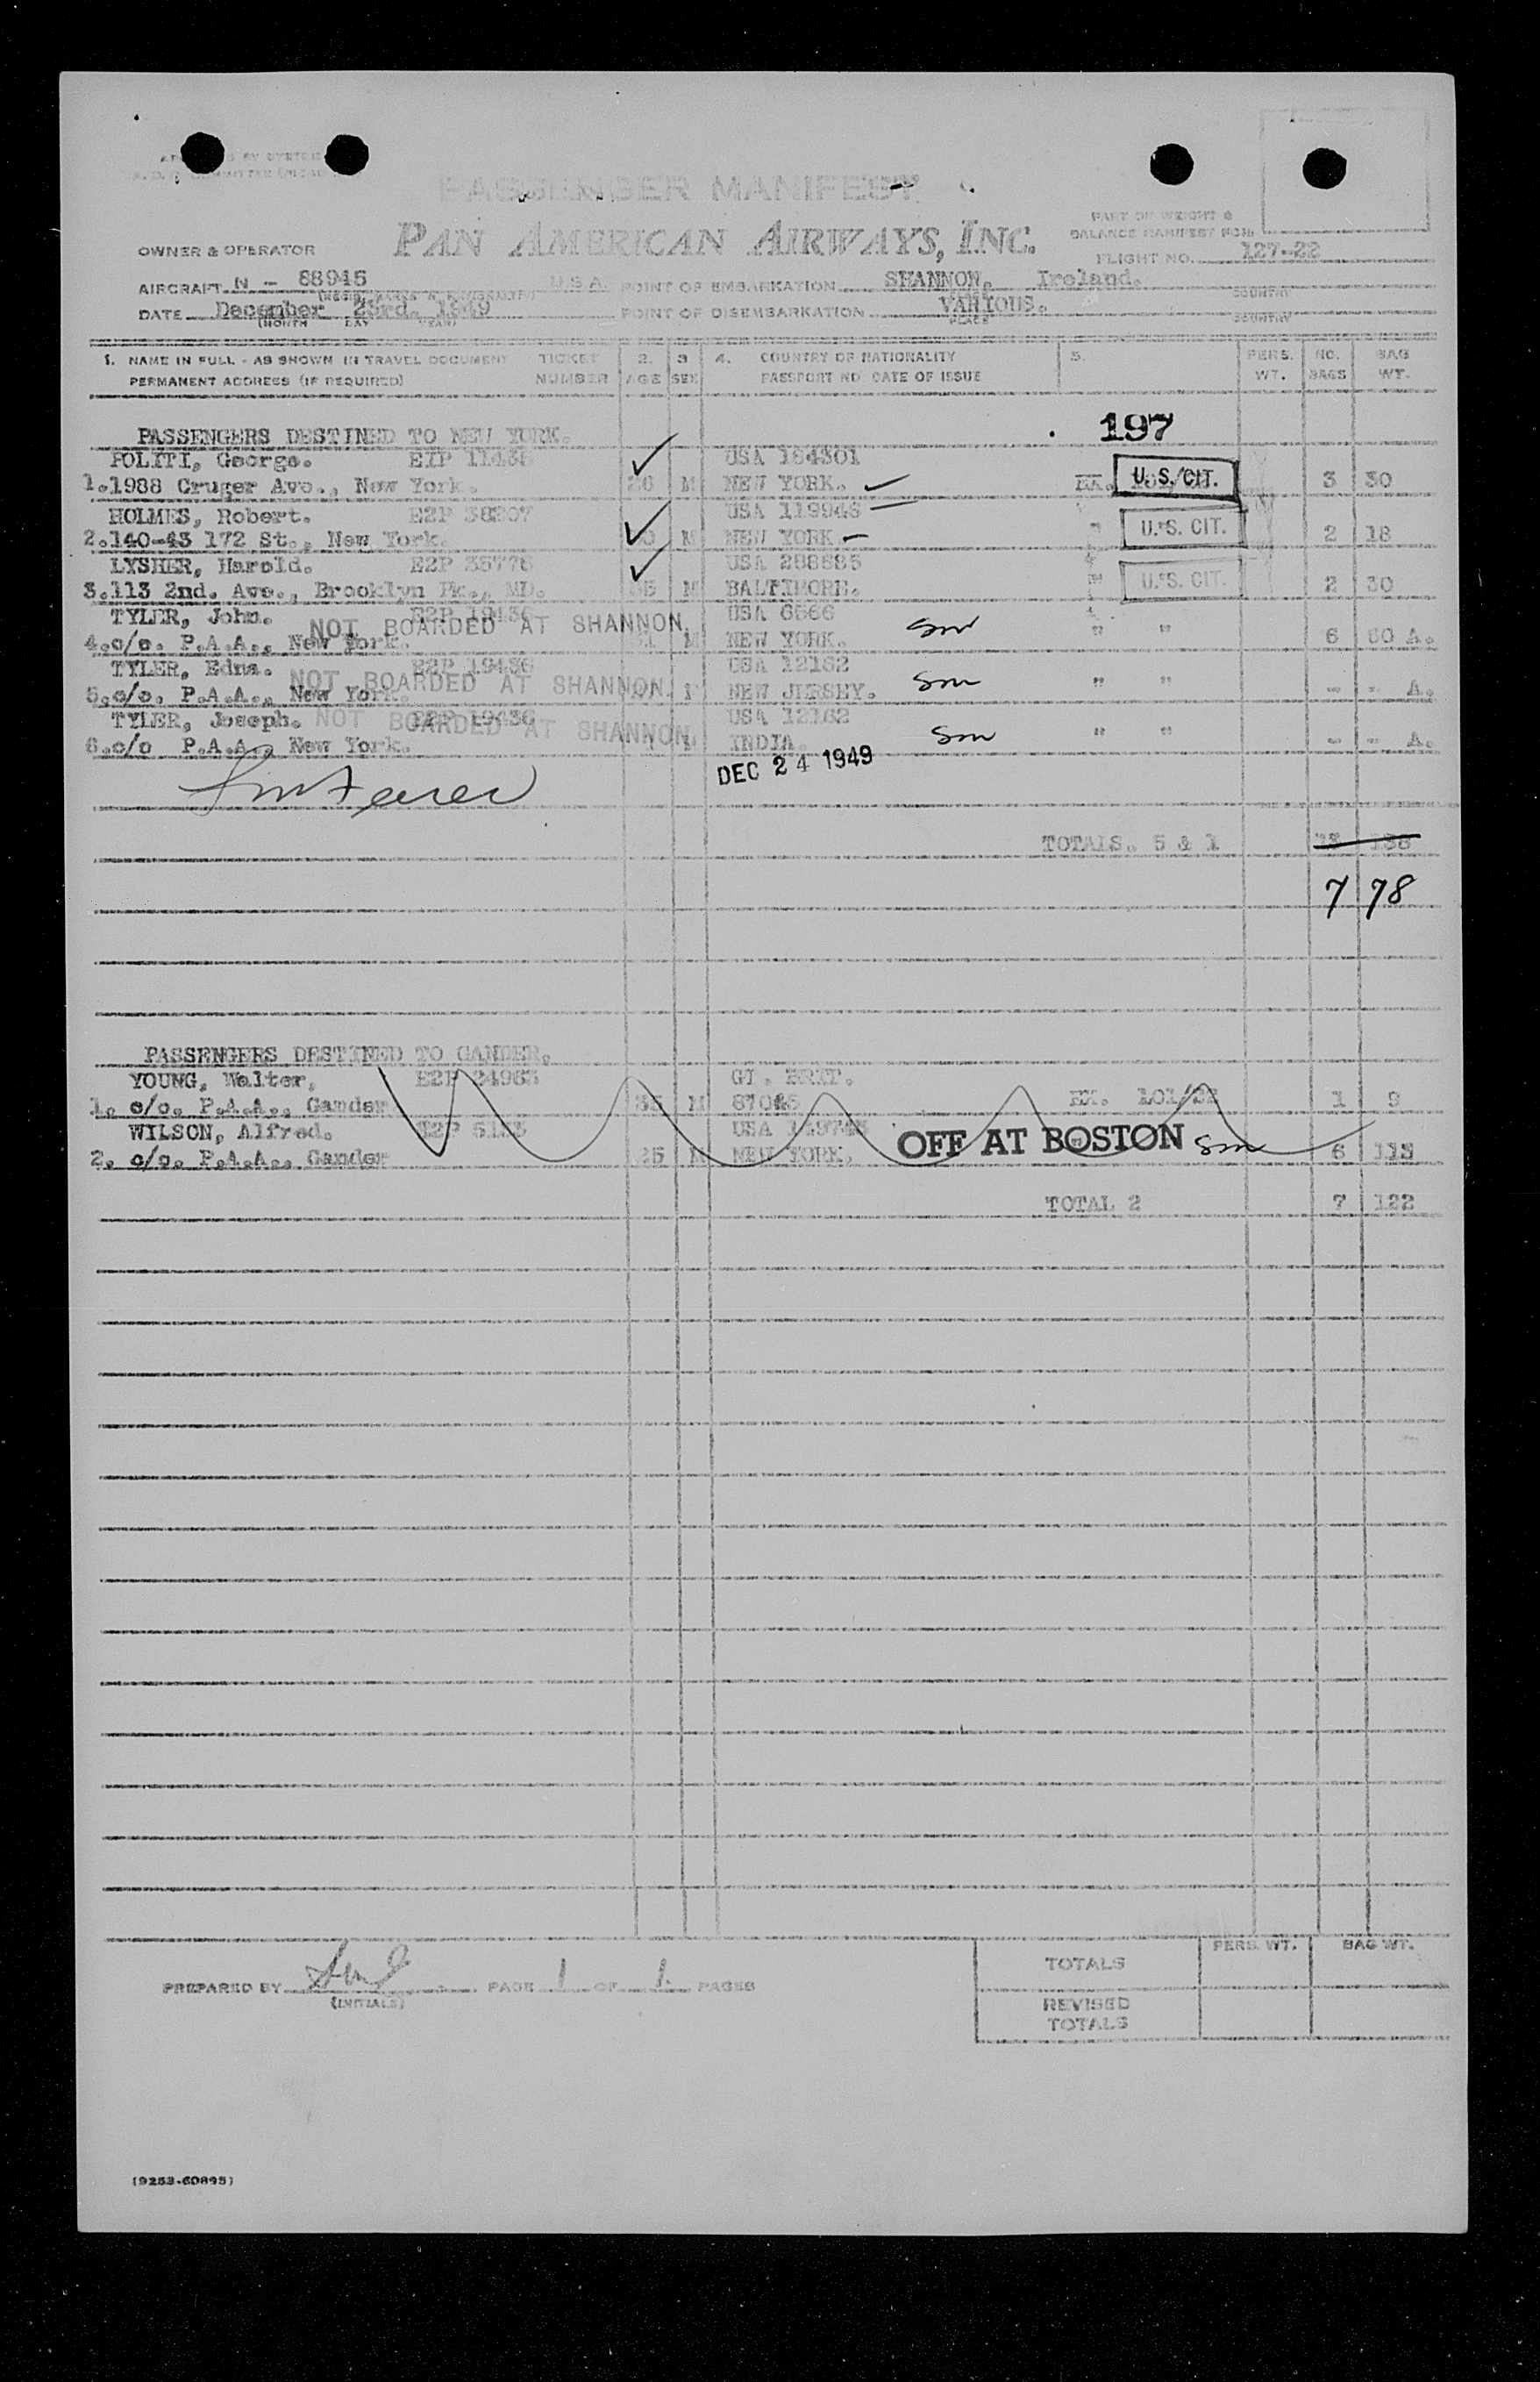 PASSENGER MANIFEST
PAN AMERICAN AIRWAYS, INC.
PART OF WEIGHT &
BALANCE MANIFEST
OWNER & OPERATOR
FLIGHT NO. 127-22
AIRCRAFT N - 88945 U.S.A. POINT OF EMBARKATION SHANNON, Ireland.
COUNTRY
DATE December 23rd. 1949 POINT OF DISEMBARKATION VARIOUS.
(MONTH DAY YEAR) PLACE COUNTRY
1. NAME IN FULL - AS SHOWN IN TRAVEL DOCUMENT TICKET 2. 3 4. COUNTRY OF NATIONALITY 5. PERS. NO. BAG
PERMANENT ADDRESS (IF REQUIRED) NUMBER AGE SEX PASSPORT NO DATE OF ISSUE WT. BAGS WT.
197
PASSENGERS DESTINED TO NEW YORK.
POLITI, George. USA 184301
1. 1988 Cruger Ave., New York. M NEW YORK. EX. U.S. CIT. 3 30
HOLMES, Robert. USA 119948
2. 140-43 172 St., New York. M NEW YORK U.S. CIT. 2 18
LYSHER, Harold. E2P 35776 USA 288685
3. 113 2nd. Ave., Brooklyn Pk., MD. M BALTIMORE. U.S. CIT. 2 30
TYLER, John. E2P 19436 USA 6566
NOT BOARDED AT SHANNON
4. c/o. P.A.A., New York. M NEW YORK. sm " " 6 60 A.
TYLER, Edna. E2P 19436 USA 12162
NOT BOARDED AT SHANNON
5. c/o. P.A.A., New York. NEW JERSEY. sm " " - - A.
TYLER, Joseph. E2P 19436 USA 12162
NOT BOARDED AT SHANNON
6. c/o P.A.A., New York. INDIA. sm " " - - A.
DEC 24 1949
TOTALS. 5 & 1 138
7 78
PASSENGERS DESTINED TO GANDER.
YOUNG, Walter, GT. BRIT.
1. c/o. P.A.A., Gander 35 M EX. 101/22 1 9
WILSON, Alfred. USA
OFF AT BOSTON sm
2. c/o. P.A.A., Gander 25 M NEW YORK. 6 113
TOTAL 2 7 122
PERS. WT. BAG WT.
TOTALS
PREPARED BY PAGE 1 OF 1. PAGES
(INITIALS)
REVISED
TOTALS
(9253-60895)